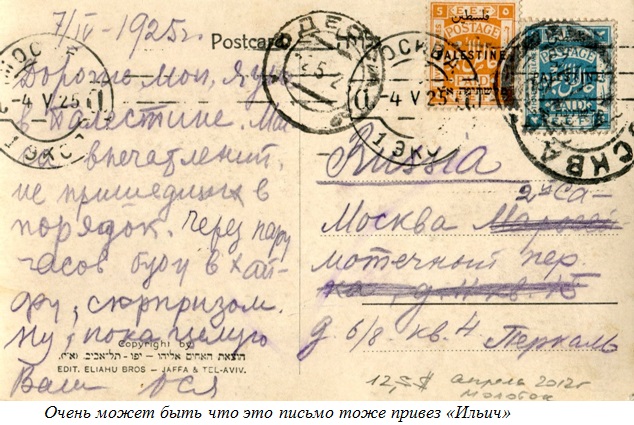 7/IV-1925 г.
Postcard
Дорогие мои. Я уже
в Палестине. Масса
впечатлений,
не пришедших в
порядок. Через пару
часов буду в Хай-
фу, сюрпризом.
Ну, пока целую
Ваш Ося
Copyright by
הוצאת האחים אליהו – יפו - תל-אביב. (א"י).
EDIT. ELIAHU BROS – JAFFA & TEL-AVIV.
ОДЕССА
МОСКВА
4 V 25
1 ЭКСП
4 V 25
1 ЭКСП
МОСКВА
E.E.F.
POSTAGE
فلسطين
PALESTINE
PAID
E.E.F.
POSTAGE
PALESTINE
PAID
Russia
Москва 2ой Са-
мотечный пер.
д 6/8 кв. 4 Перкаль
апрель 2012 г
молоток
Очень может быть что это письмо тоже привез «Ильич»